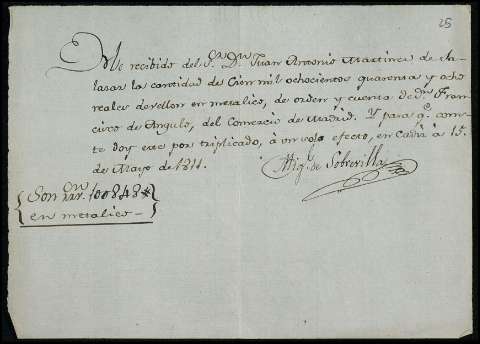 28
He recibido del S.or D.n Juan Antonio Martinez de Sa-
lazar la cantidad de Cien mil ochocientos quarenta y ocho
reales devellon en metalico, de orden y cuenta de D.n Fran-
cisco de Angulo, del Comercio de Madrid. Y para q.e cons-
te doy este por triplicado, à un solo efecto, en Cadiz à 15
de Mayo de 1811.
Mig.l de Sobrevilla
Son R.s v.n 100848
en metalico